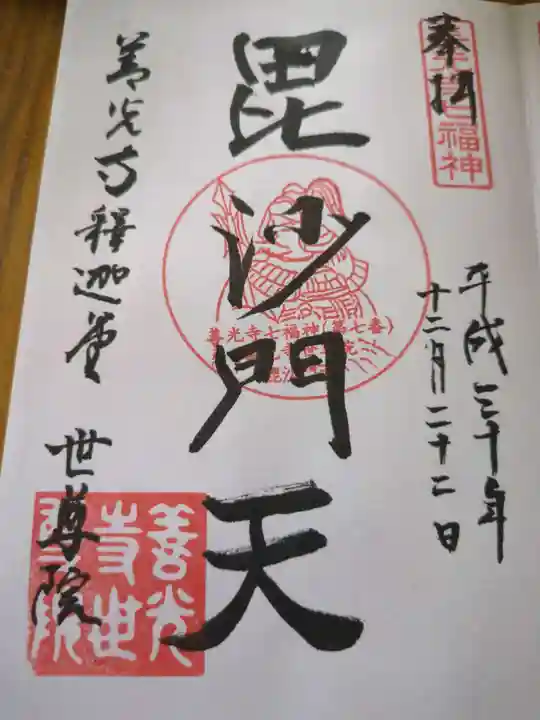 奉拝
福神
平成三十年
十二月二十二日
毘沙門天
善光寺七福神(第七番)
善光寺釋迦堂 世尊院
善光
寺世
尊院